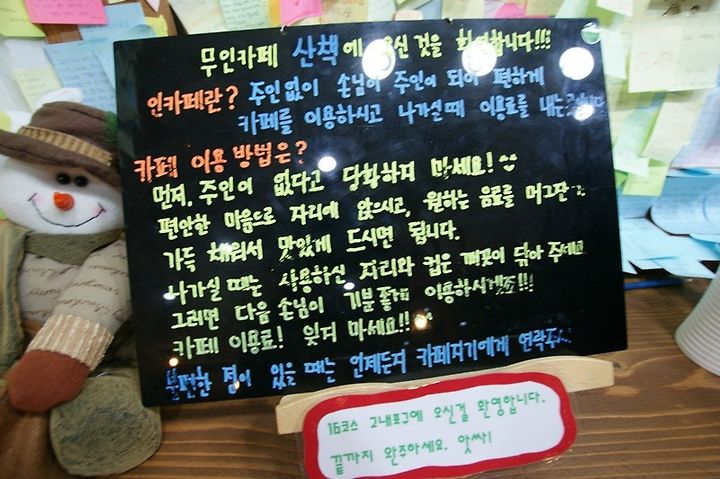 무인카페 산책에 오신것을 환영합니다!!!
인카페란? 주인없이 손님이 주인이 되어 편하게
카페를 이용하시고 나가실때 이용료를 내는
카페 이용 방법은?
먼저, 주인이 없다고 당황하지 마세요!
편안한 마음으로 자리에 앉으시고, 원하는 음료를 머그잔
가득 채워서 맛있게 드시면 됩니다.
나가실 때는 사용하신 자리와 컵은 깨끗이 닦아 주세요
그러면 다음 손님이 기분 좋게 이용하시겠죠!!!
카페 이용료! 잊지 마세요!!
불편한 점이 있을 때는 언제든지 카페지기에게 연락주
16코스 고내포구에 오신걸 환영합니다.
끝까지 완주하세요. 앗싸!